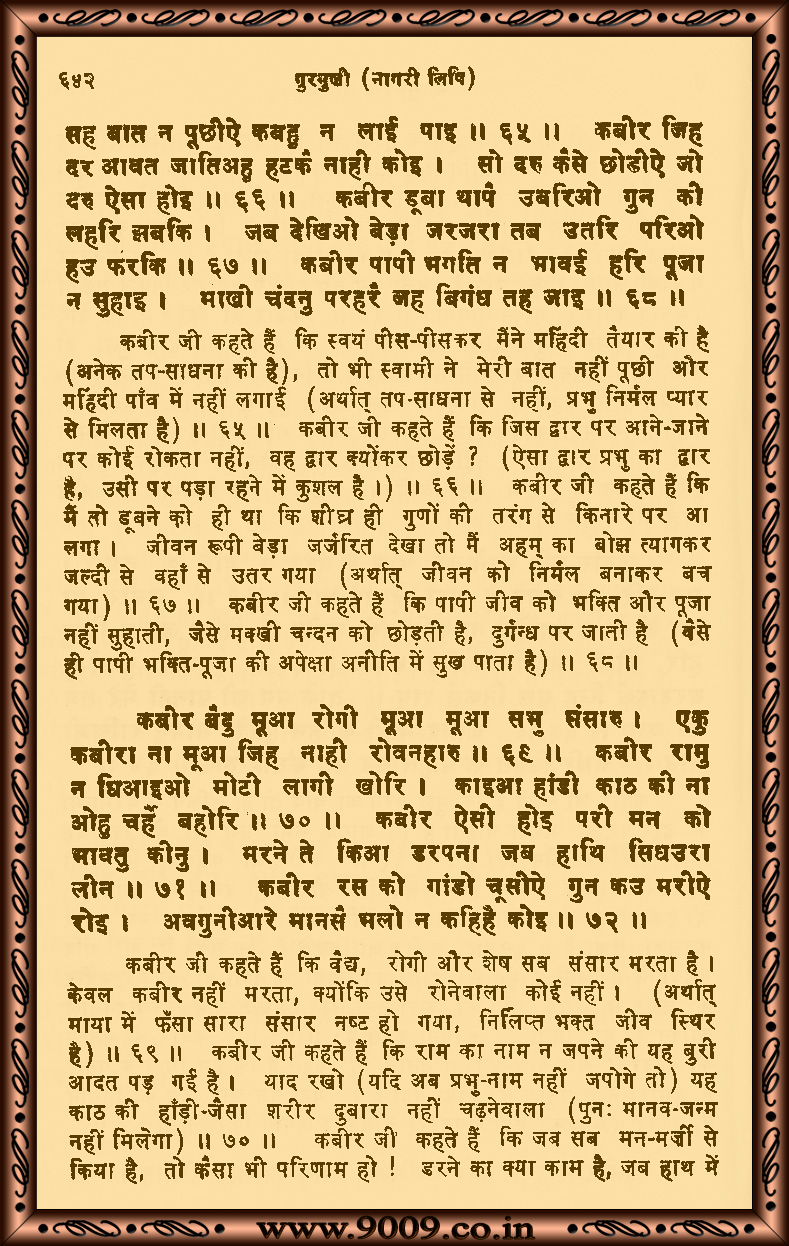 ६४२ गुरमुखी (नागरी लिपि)
सह बात न पूछीऐ कबहु न लाई पाइ ॥ ६५ ॥ कबीर जिह
दर आवत जातिअहु हटकै नाही कोइ । सो दरु कैसे छोडीऐ जो
दरु ऐसा होइ ॥ ६६ ॥ कबीर डूबा थापै उबरिओ गुन की
लहरि झबकि । जब देखिओ बेड़ा जरजरा तब उतरि परिओ
हउ फरकि ॥ ६७ ॥ कबीर पापी भगति न भावई हरि पूजा
न सुहाइ । माखी चंदनु परहरै जह बिगंध तह जाइ ॥ ६८ ॥
कबीर जी कहते हैं कि स्वयं पीस-पीसकर मैंने महिंदी तैयार की है
(अनेक तप-साधना की है), तो भी स्वामी ने मेरी बात नहीं पूछी और
महिंदी पाँव में नहीं लगाई (अर्थात् तप-साधना से नहीं, प्रभु निर्मल प्यार
से मिलता है) ॥ ६५ ॥ कबीर जी कहते हैं कि जिस द्वार पर आने-जाने
पर कोई रोकता नहीं, वह द्वार क्योंकर छोड़ें ? (ऐसा द्वार प्रभु का द्वार
है, उसी पर पड़ा रहने में कुशल है ।) ॥ ६६ ॥ कबीर जी कहते हैं कि
मैं तो डूबने को ही था कि शीघ्र ही गुणों की तरंग से किनारे पर आ
लगा । जीवन रूपी बेड़ा जर्जरित देखा तो मैं अहम् का बोझ त्यागकर
जल्दी से वहाँ से उतर गया (अर्थात् जीवन को निर्मल बनाकर बच
गया) ॥ ६७ ॥ कबीर जी कहते हैं कि पापी जीव को भक्ति और पूजा
नहीं सुहाती, जैसे मक्खी चन्दन को छोड़ती है, दुर्गन्ध पर जाती है (वैसे
ही पापी भक्ति-पूजा की अपेक्षा अनीति में सुख पाता है) ॥ ६८ ॥
कबीर बैदु मूआ रोगी मूआ मूआ सभु संसारु । एकु
कबीरा ना मूआ जिह नाही रोवनहारु ॥ ६९ ॥ कबीर रामु
न धिआइओ मोटी लागी खोरि । काइआ हांडी काठ की ना
ओहु चर्है बहोरि ॥ ७० ॥ कबीर ऐसी होइ परी मन को
भावतु कीनु । मरने ते किआ डरपना जब हाथि सिधउरा
लीन ॥ ७१ ॥ कबीर रस को गांडो चूसीऐ गुन कउ मरीऐ
रोइ । अवगुनीआरे मानसै भलो न कहिहै कोइ ॥ ७२ ॥
कबीर जी कहते हैं कि वैद्य, रोगी और शेष सब संसार मरता है ।
केवल कबीर नहीं मरता, क्योंकि उसे रोनेवाला कोई नहीं । (अर्थात्
माया में फँसा सारा संसार नष्ट हो गया, निर्लिप्त भक्त जीव स्थिर
है) ॥ ६९ ॥ कबीर जी कहते हैं कि राम का नाम न जपने की यह बुरी
आदत पड़ गई है । याद रखो (यदि अब प्रभु-नाम नहीं जपोगे तो) यह
काठ की हाँड़ी-जैसा शरीर दुबारा नहीं चढ़नेवाला (पुनः मानव-जन्म
नहीं मिलेगा) ॥ ७० ॥ कबीर जी कहते हैं कि जब सब मन-मर्जी से
किया है, तो कैसा भी परिणाम हो ! डरने का क्या काम है, जब हाथ में
www.9009.co.in